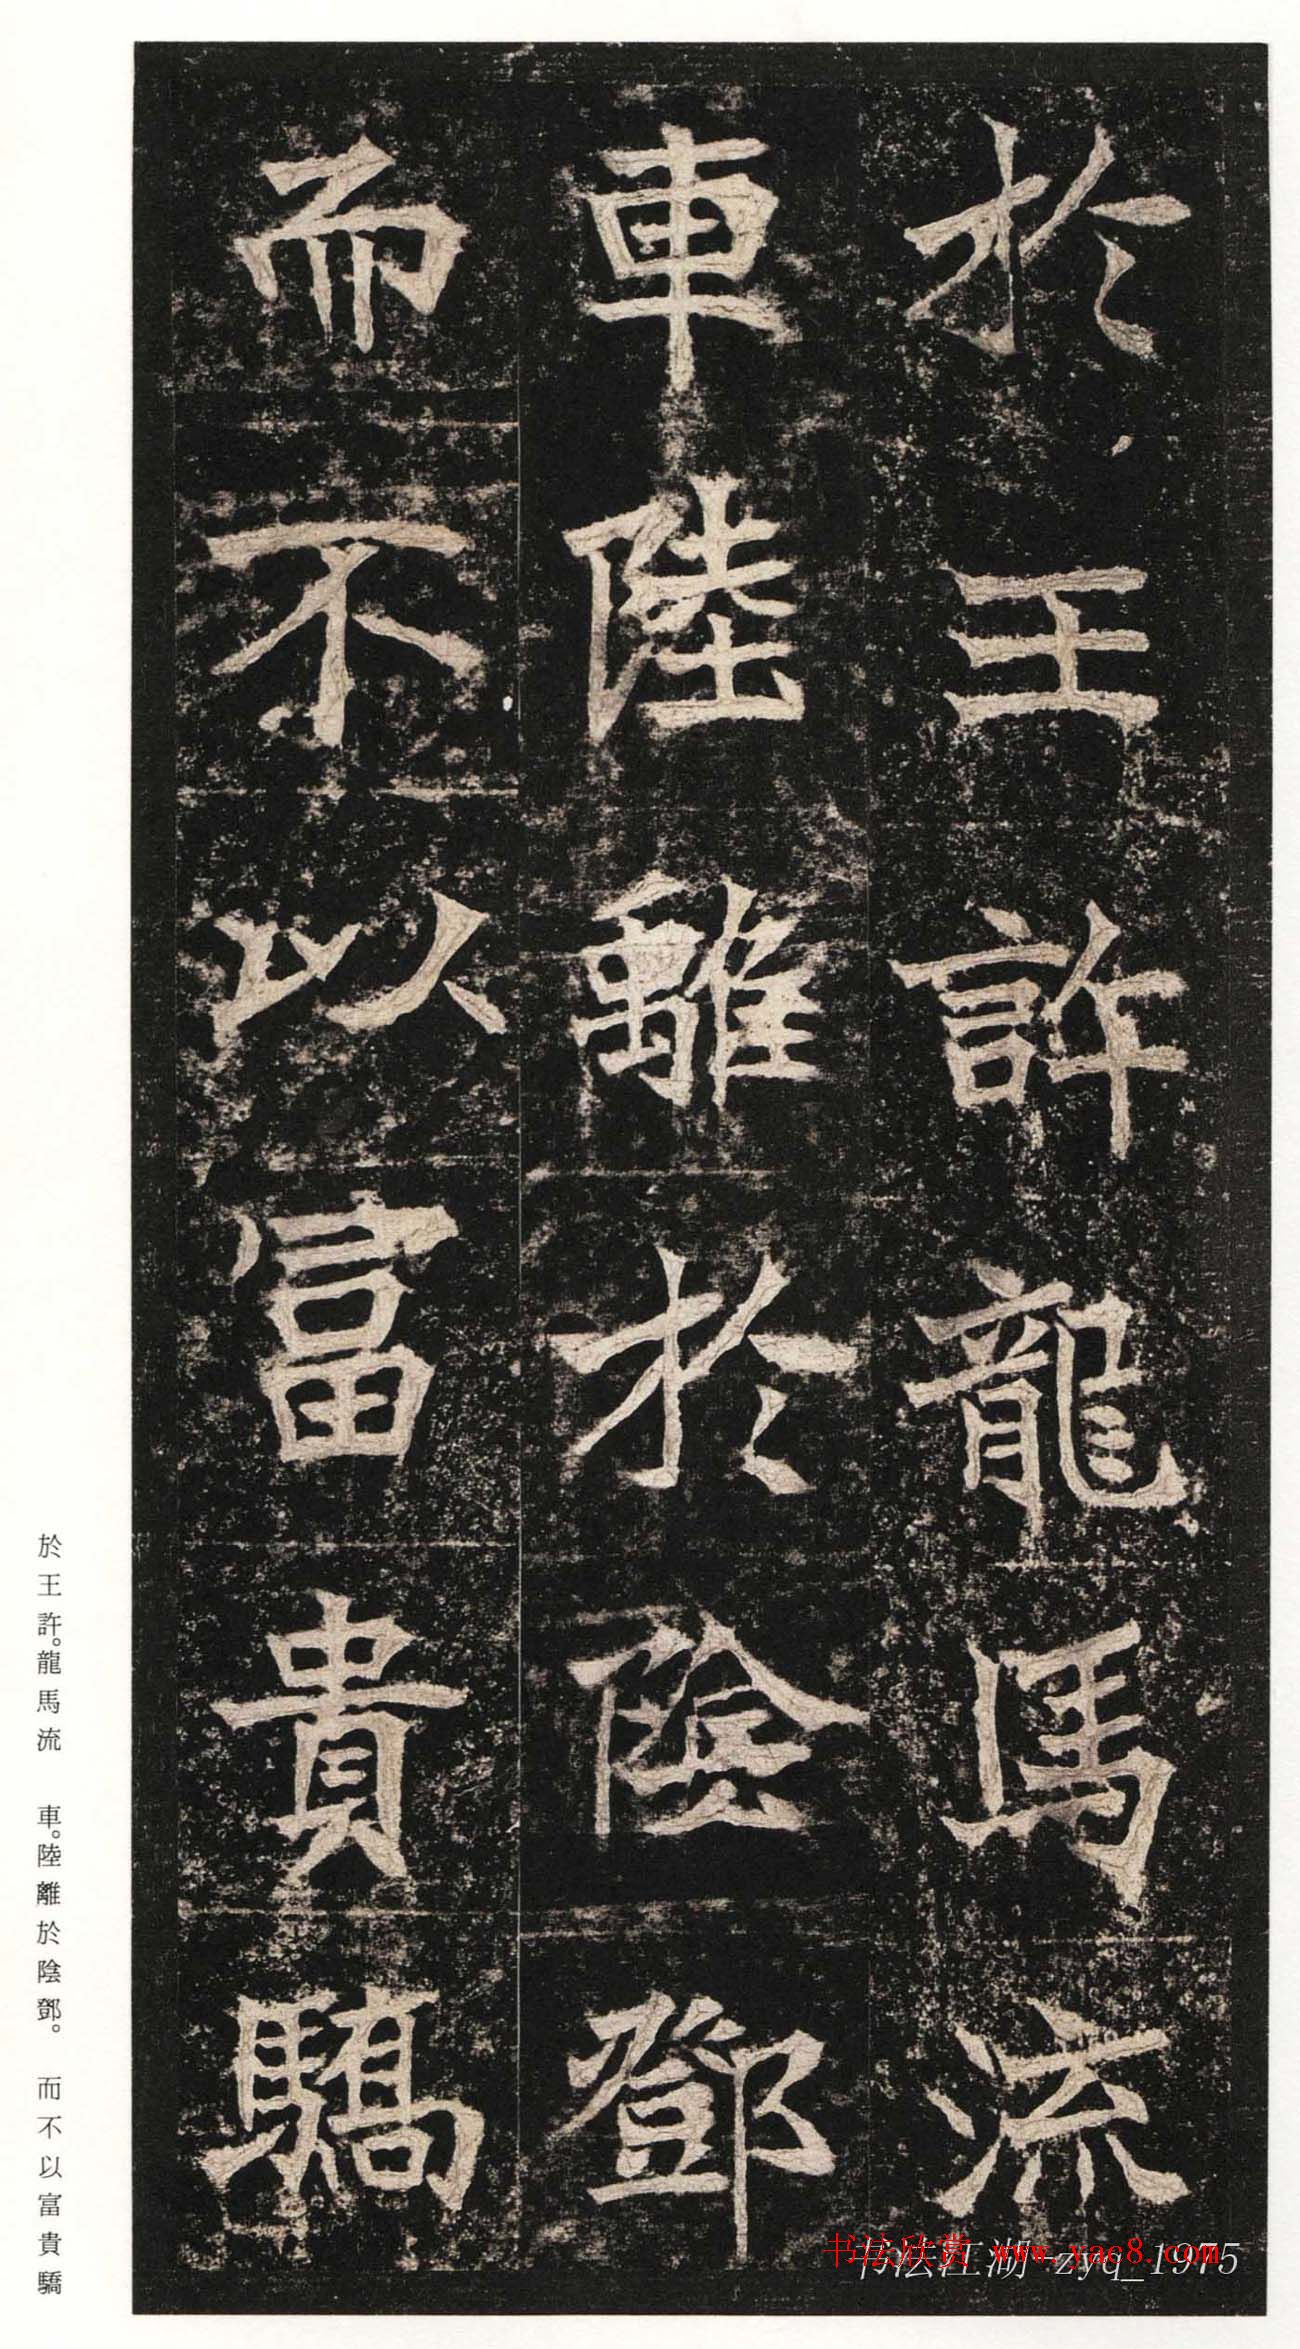 於王許龍馬流
車陸離於陰鄧
而不以富貴驕
於王許。龍馬流　車。陸離於陰鄧。　而不以富貴驕
书法欣赏 www.yac8.com
书法江湖 zyq_1975